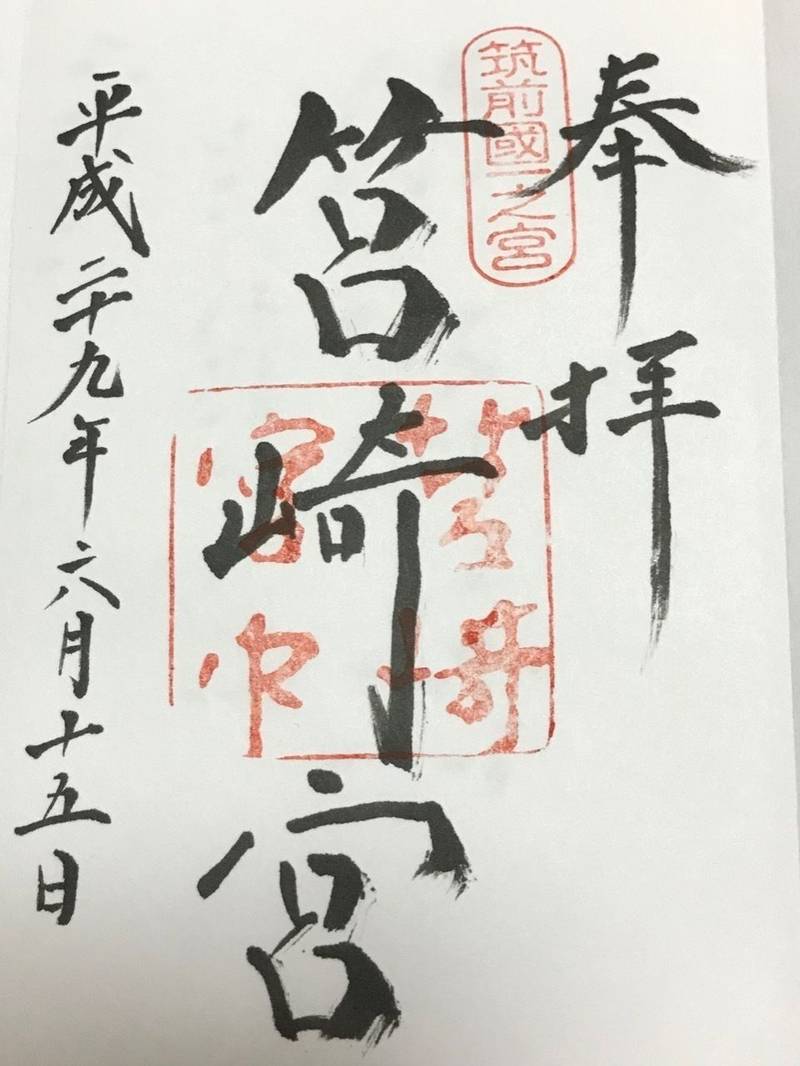 奉拝
筑前國一之宮
筥崎宮
平成二十九年六月十五日